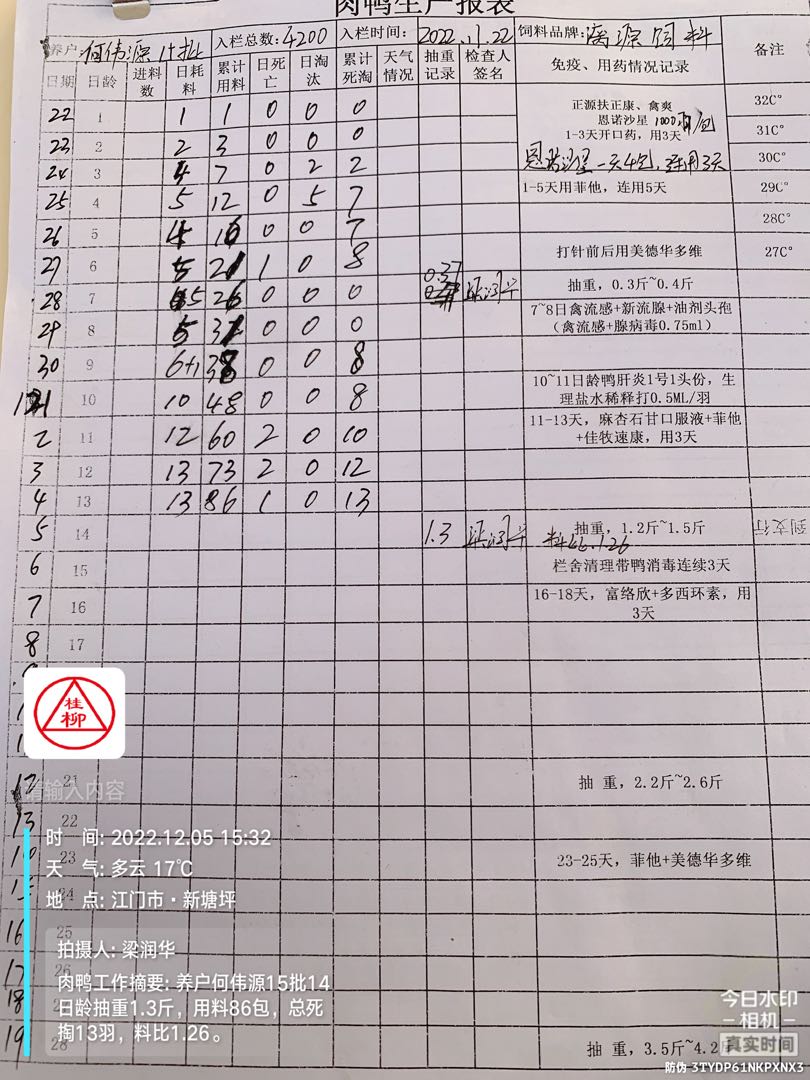 肉鸭生产报表
养户 何伟源 入栏总数: 4200 入栏时间: 2022.11.22 饲料品牌: 饲料 备注
日期 日龄 进料数 日耗料 累计用料 日死亡 日淘汰 累计死淘 天气情况 抽重记录 检查人签名 免疫、用药情况记录
22 1 1 1 0 0 0 正源扶正康、禽爽 32C°
恩诺沙星 1000
23 2 2 3 0 0 0 1-3天开口药，用3天 31C°
24 3 4 7 0 2 2 恩诺沙星一天4包，连用3天 30C°
25 4 5 12 0 5 7 1-5天用菲他，连用5天 29C°
28C°
26 5 4 16 0 0 7
27 6 5 21 1 0 8 打针前后用美德华多维 27C°
28 7 5 26 0 0 0 0.37 梁润华 抽重，0.3斤~0.4斤
29 8 5 31 0 0 0 7~8日禽流感+新流腺+油剂头孢
（禽流感+腺病毒0.75ml）
30 9 6+1 38 0 0 8
10 10 48 0 0 8 10~11日龄鸭肝炎1号1头份，生
理盐水稀释打0.5ML/羽
2 11 12 60 2 0 10 11-13天，麻杏石甘口服液+菲他
+佳牧速康，用3天
3 12 13 73 2 0 12
4 13 13 86 1 0 13
5 14 1.3 梁润华 抽重，1.2斤~1.5斤
料比1.26
6 15 栏舍清理带鸭消毒连续3天
7 16 16-18天，富络欣+多西环素，用
3天
8 17
桂柳
12 21 抽 重，2.2斤~2.6斤
请输入内容
13 22
23 23-25天，菲他+美德华多维
15 24
16 25
17 26
18
19 28 抽 重，3.5斤~4.2斤
时 间: 2022.12.05 15:32
天 气: 多云 17℃
地 点: 江门市·新塘坪
拍摄人: 梁润华
肉鸭工作摘要: 养户何伟源15批14
日龄抽重1.3斤，用料86包，总死
掏13羽，料比1.26。
今日水印
-相机-
真实时间
防伪 3TYDP61NKPXNX3